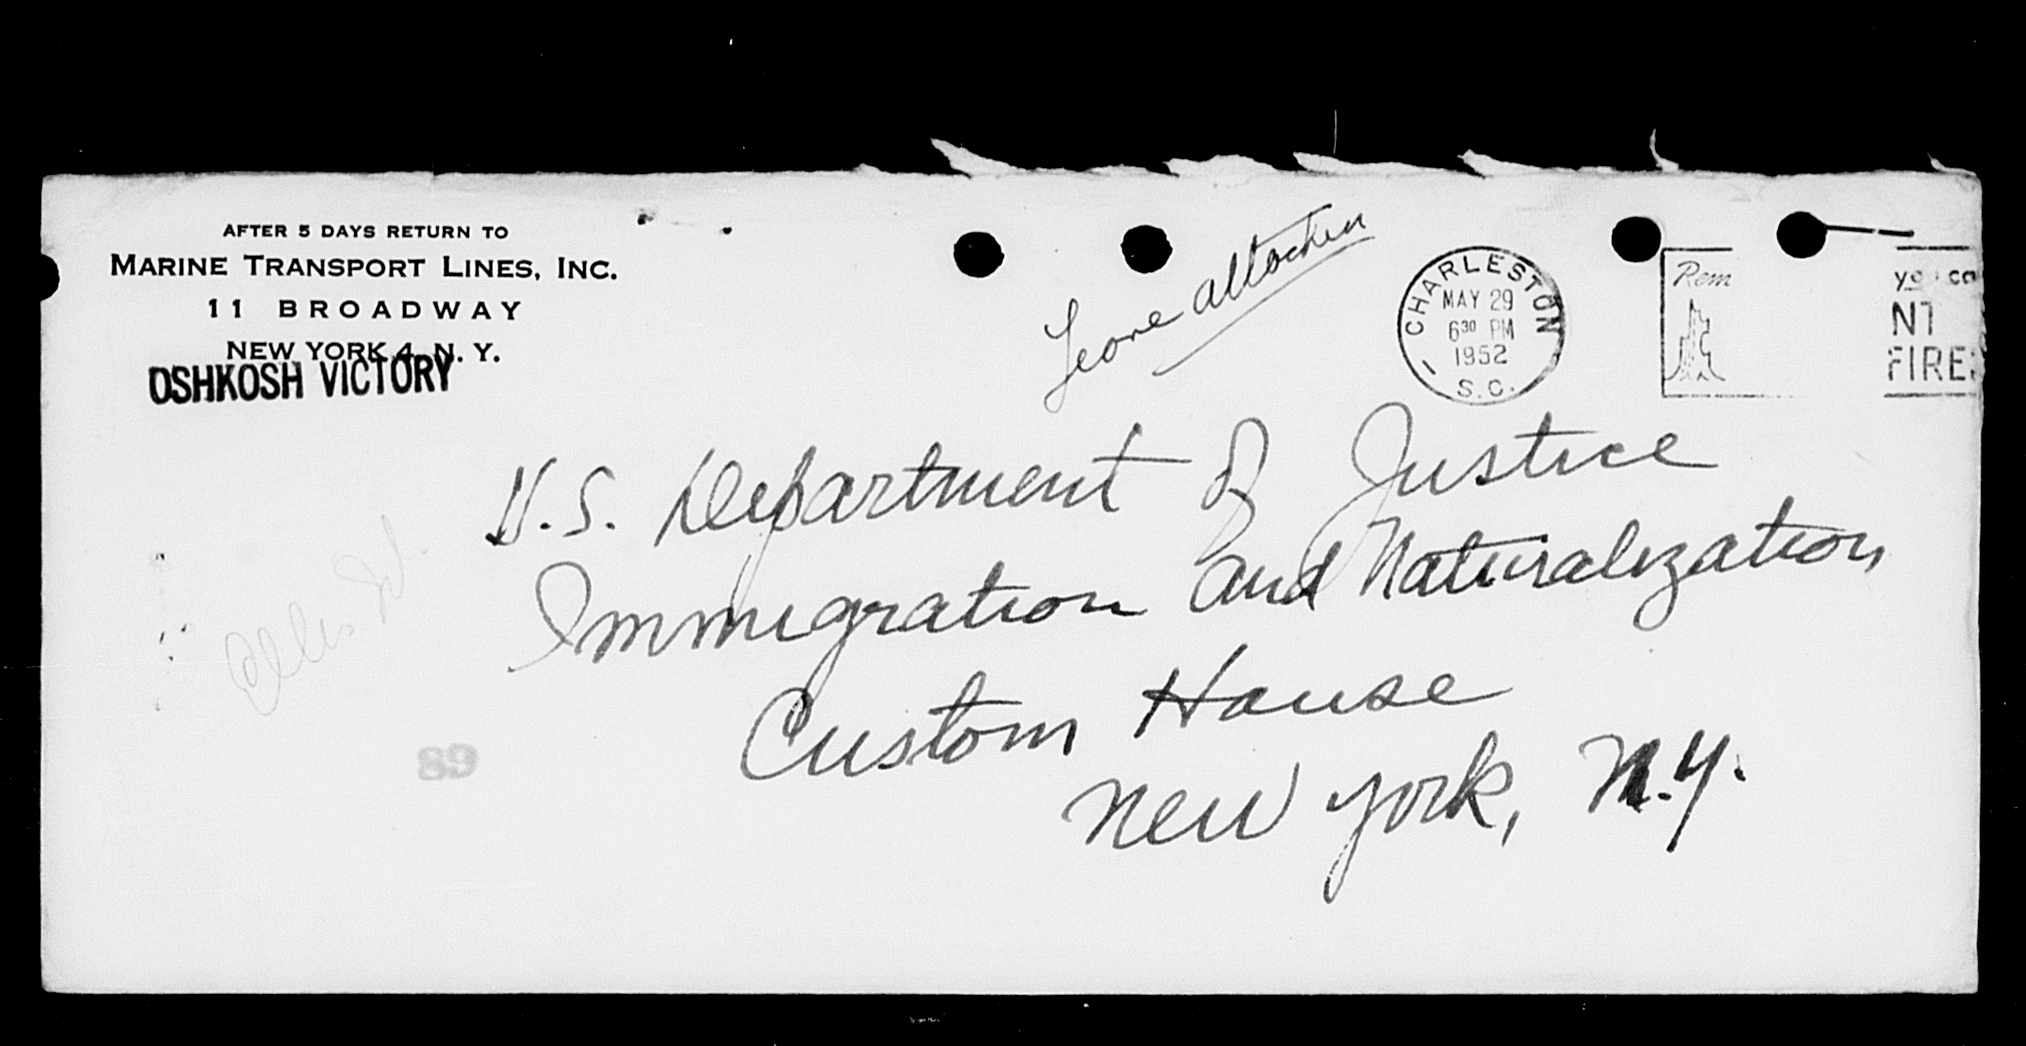 AFTER 5 DAYS RETURN TO
MARINE TRANSPORT LINES, INC.
11 BROADWAY
NEW YORK 4, N. Y.
OSHKOSH VICTORY
Leave attached
CHARLESTON
MAY 29
6 30 PM
1952
S.C.
Rem
yo ca
NT
FIRES
U.S. Department of Justice
Immigration and Naturalization
Custom House
New York, N.Y.
Ellis Id.
89